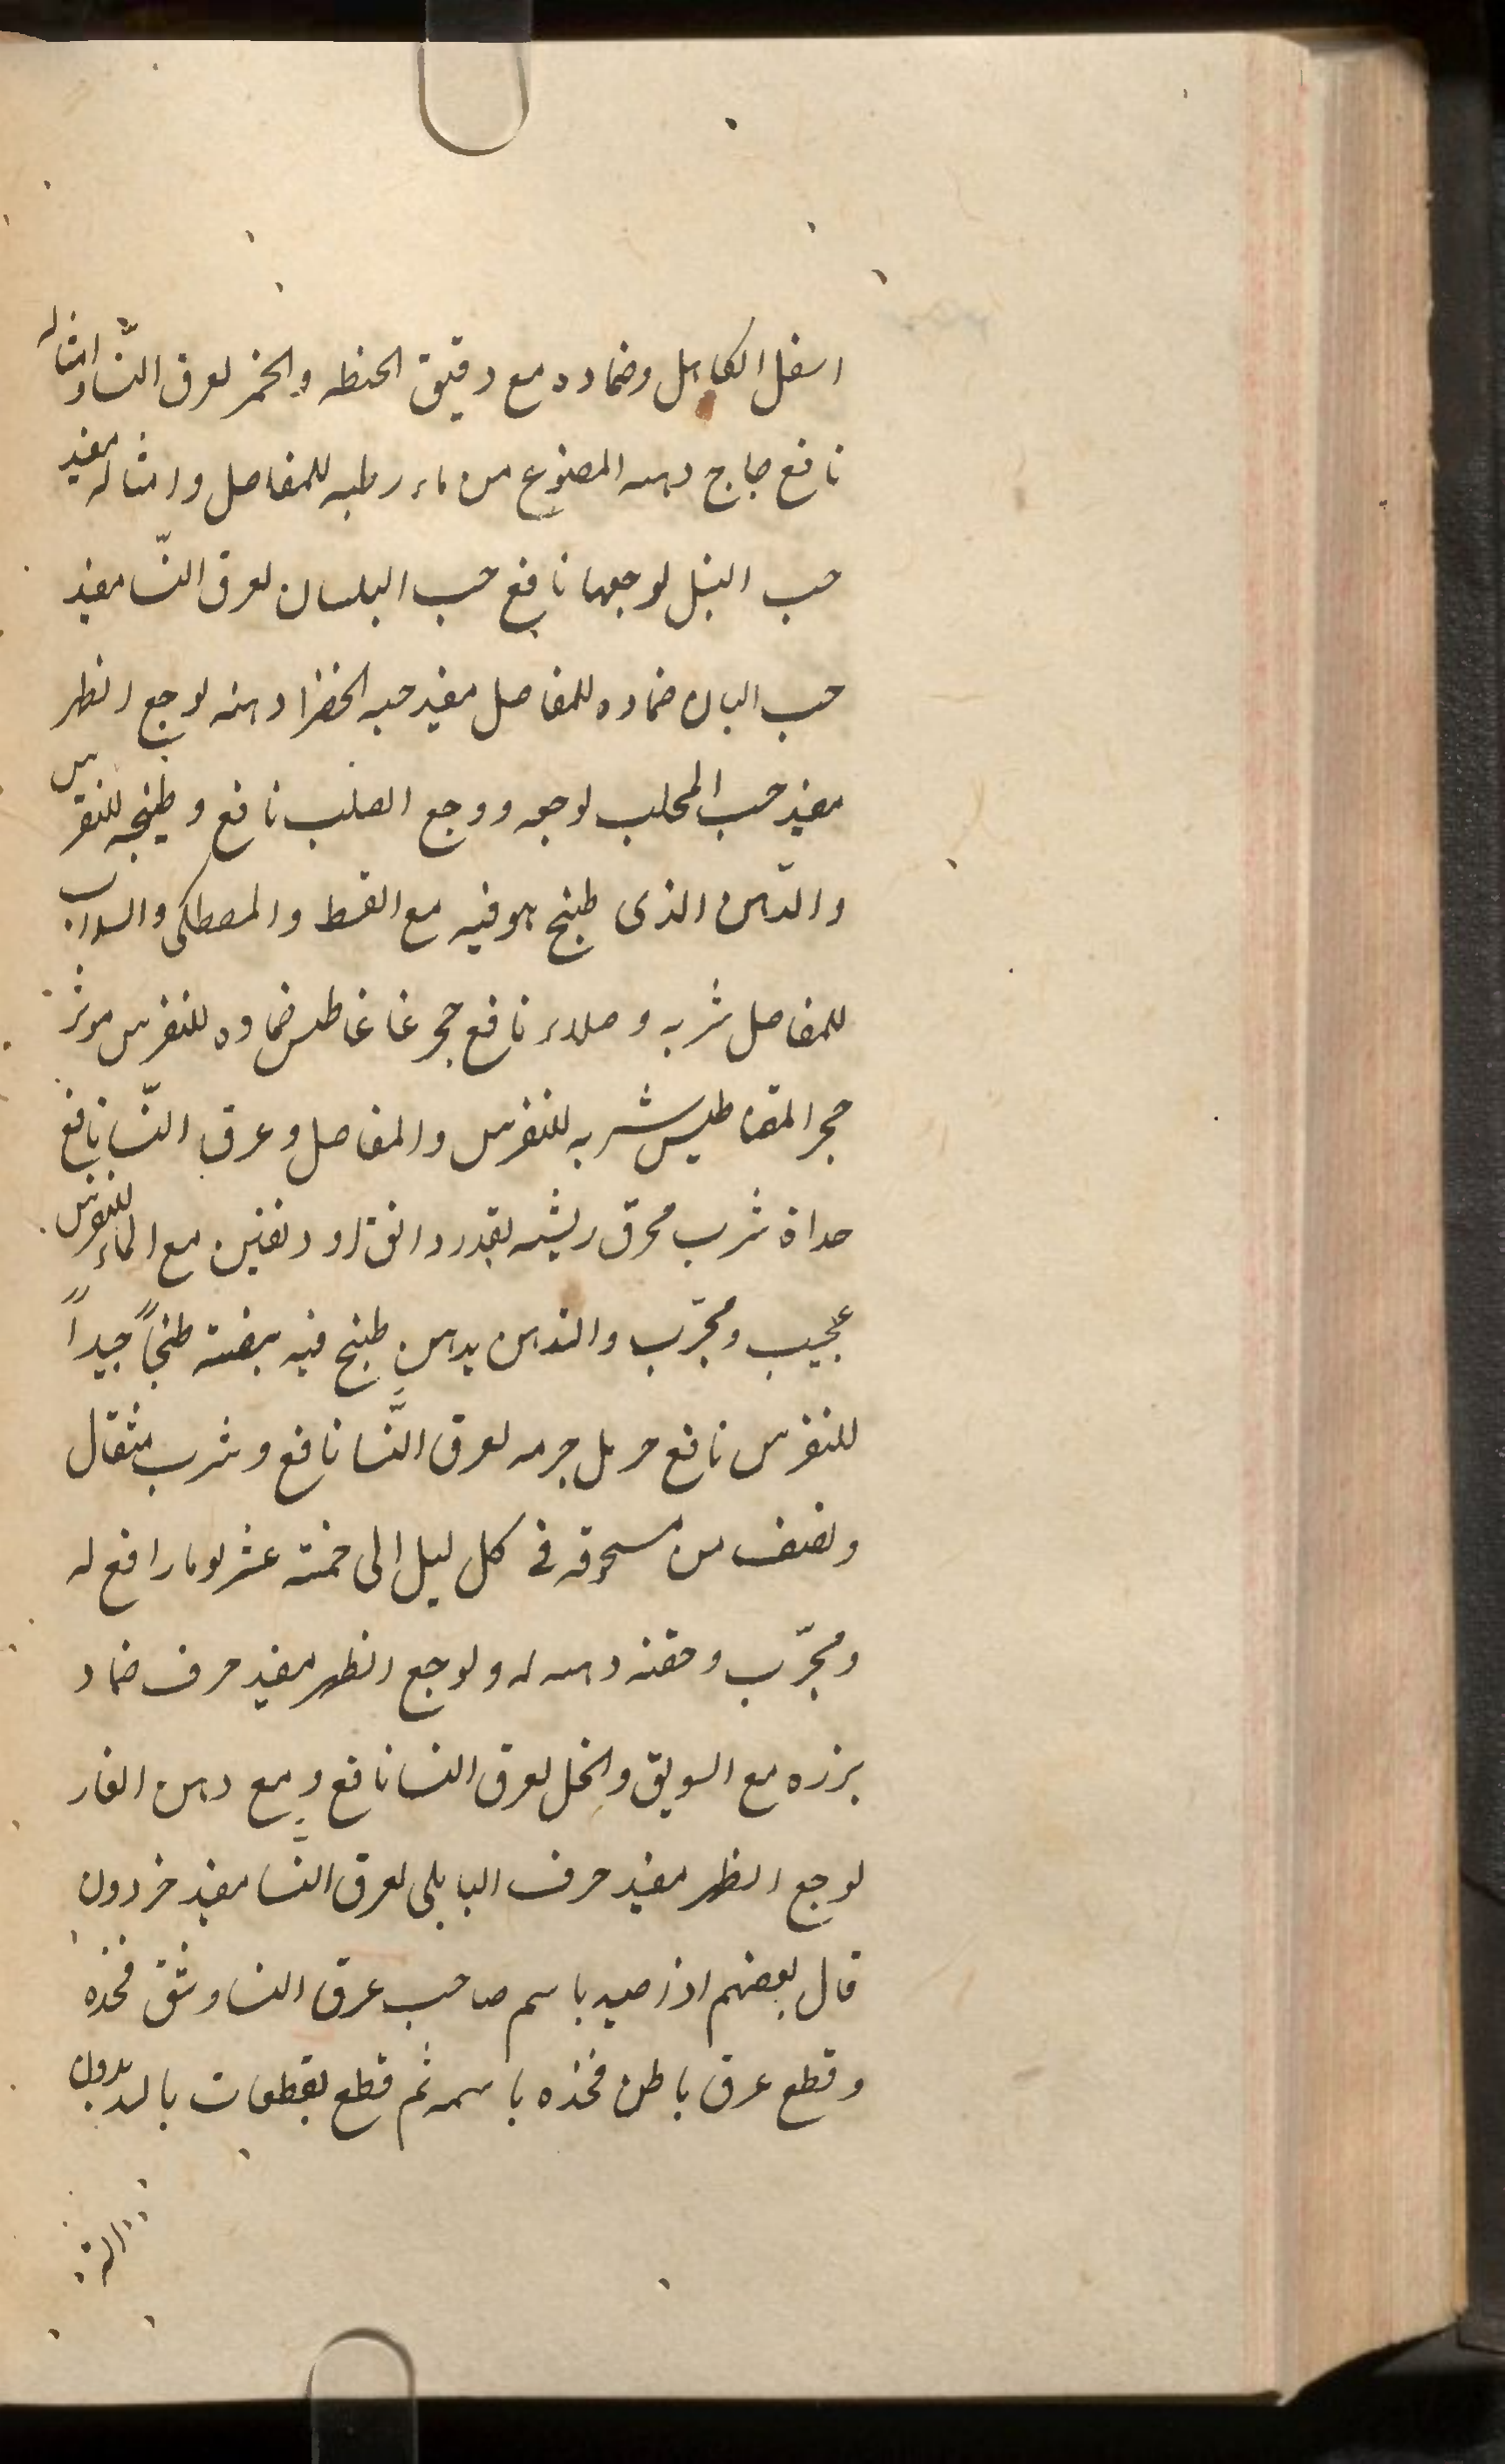 اسفل الكاهل وضماده مع دقيق الحنطه والخمر لعرق النّسا وامثاله
نافع حاج دهنه المصنوع من ماء رطبه للمفاصل وامثاله مفيد
حب النيل لوجعها نافع حب البلسان لعرق النّسا مفيد
حب البان ضماده للمفاصل مفيد حبه الخضرا دهنه لوجع الظهر
مفيد حب المحلب لوجعه ووجع الصلب نافع وطبيخه للنقرس
والدّهن الذى طبخ هو فيه مع القسط والمصطكى والسداب
للمفاصل شربه وطلاء نافع حجر غاغاطيس ضماده للنقرس موثر
حجر المقناطيس شربه للنقرس والمفاصل وعرق النّسا نافع
حداة شرب محرق ريشه بقدر دانق او دنقين مع الماء للنقرس
عجيب ومجرّب والتدهن بدهن طبخ فيه بيضته طبخاً جيداً
للنقرس نافع حرمل جرمه لعرق النَّسا نافع وشرب مثقال
ونصف من مسحوقه فى كل ليل الى خمسة عشر يوما رافع له
ومجرّب وحقنه دهنه له ولوجع الظهر مفيد حرف ضماد
بزره مع السويق والخل لعرق النسا نافع ومع دهن الغار
لوجع الظهر مفيد حرف البابلى لعرق النَّسا مفيد خردون
قال بعضهم اذا صيد باسم صاحب عرق النسا وشق فخذه
وقطع عرق باطن فخذه باسمه ثم قطع بقطعات بالد بدون